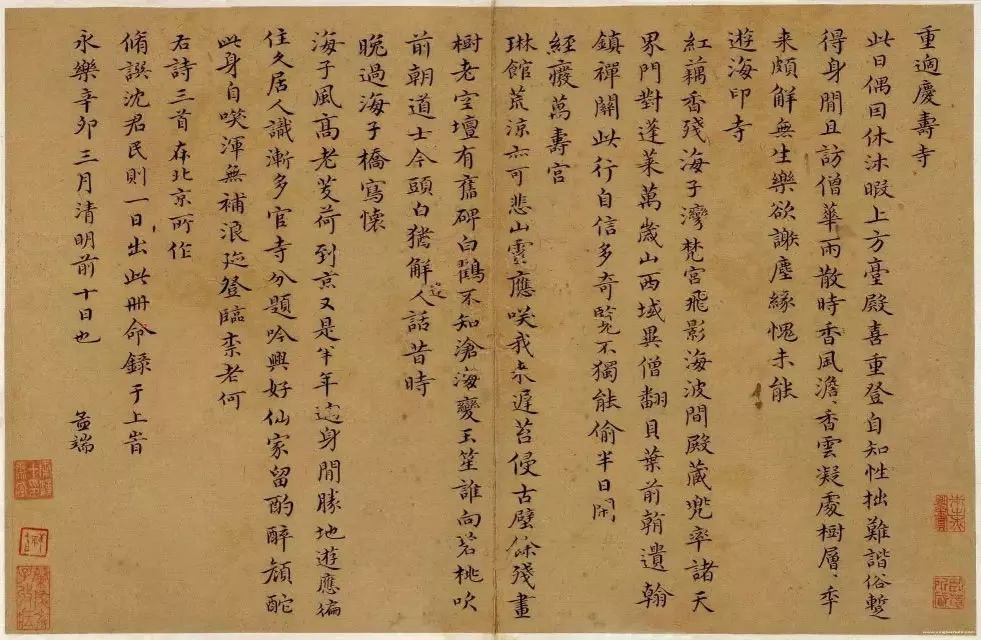 重適慶壽寺
此日偶因休沐暇上方臺殿喜重登自知性拙難諧俗蹔
得身閒且訪僧華雨散時香風澹〻香雲凝處樹層〻年
来頗解無生樂欲謝塵緣愧未能
遊海印寺
紅藕香殘海子灣梵宮飛影海波間殿藏兜率諸天
界門對蓬萊萬歲山西域異僧翻貝葉前朝遺翰
鎮禪關此行自信多奇覽不獨能偷半日閒
經廢萬壽宮
琳館荒涼亦可悲山靈應咲我来遲苔侵古壁餘殘畫
樹老空壇有舊碑白鶴不知滄海變玉笙誰向碧桃吹
前朝道士今頭白猶解逢人話昔時
晚過海子橋寫懷
海子風高老芰荷到京又是半年過身閒勝地遊應徧
住久居人識漸多官寺分題吟興好仙家留酌醉顏酡
此身自咲渾無補浪跡登臨柰老何
右詩三首在北京所作
脩譔沈君民則一日出此冊命錄于上旹
永樂辛卯三月清明前十日也 孟端